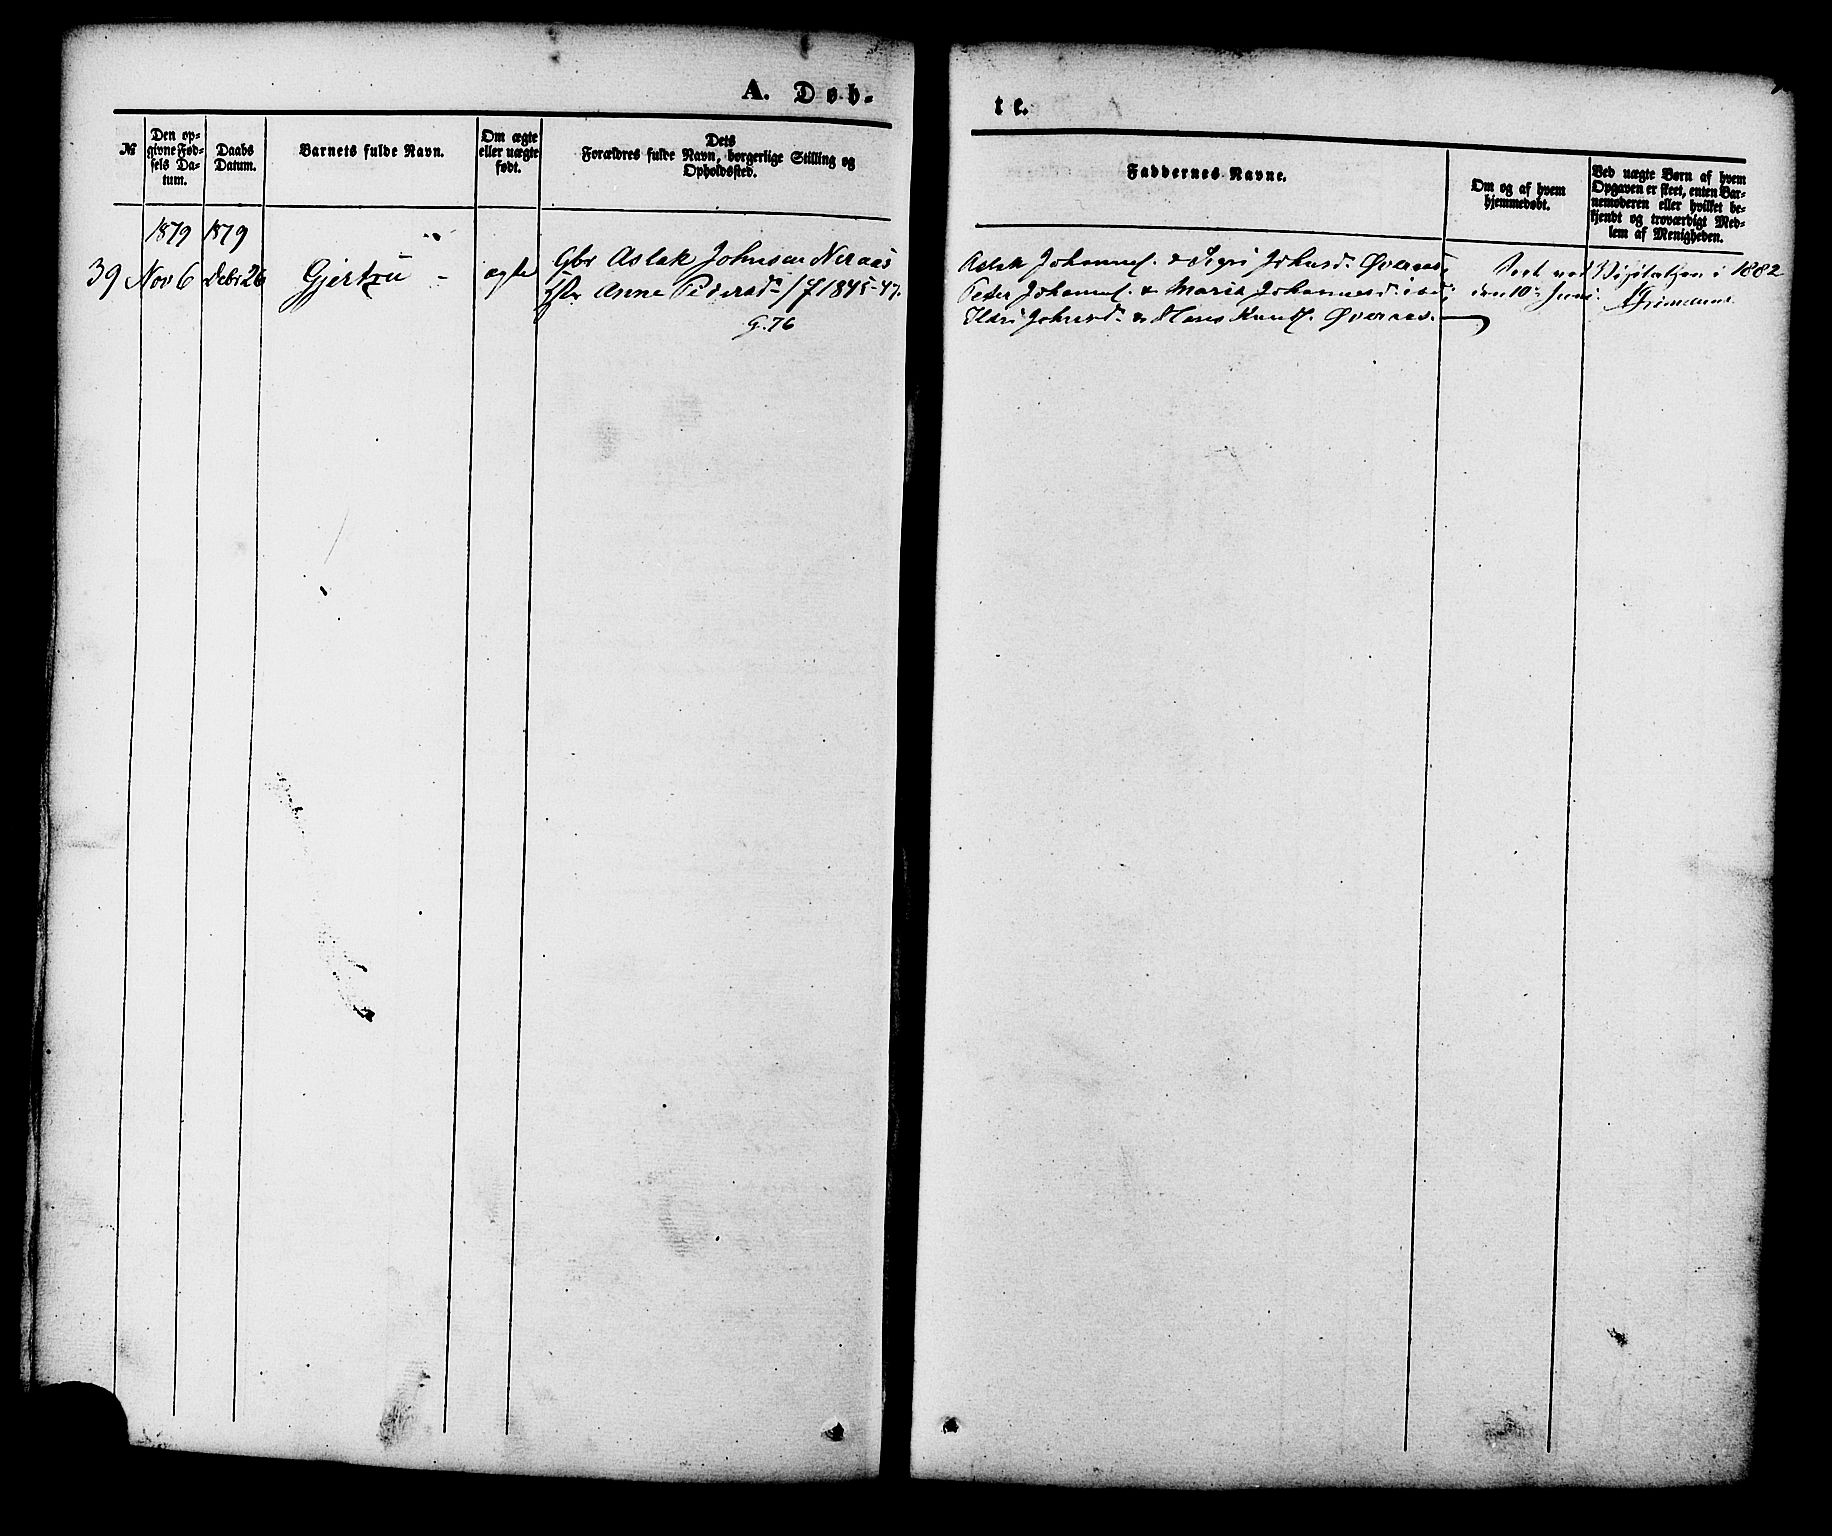 A. Døb-
te.
№
Den op-
givne Fød-
sels Da-
tum.
Daabs
Datum.
Barnets fulde Navn.
Om ægte
eller uægte
født.
Dets
Forældres fulde Navn, borgerlige Stilling og
Opholdssted.
Faddernes Navne.
Om og af hvem
hjemmedøbt.
Ved uægte Børn af hvem
Opgaven er skeet, enten Bar-
nemoderen eller hvilket be-
kjendt og troværdigt Med-
lem af Menigheden.
1879 1879
39 Nov 6 Debr 26 Gjertru - ægte Gbr Aslak Johnsen Neraas
Anne Pedersd. / f 1845-47.
G. 76
Aslak Johannes. & Johnsd. Øveraas,
Peter Johannes. & Marit Johannesd. ibid,
Ildri Johnsd. & Hans Knuds. Øveraas.
Seet ved Visitatsen i 1882
den 10. Juni.